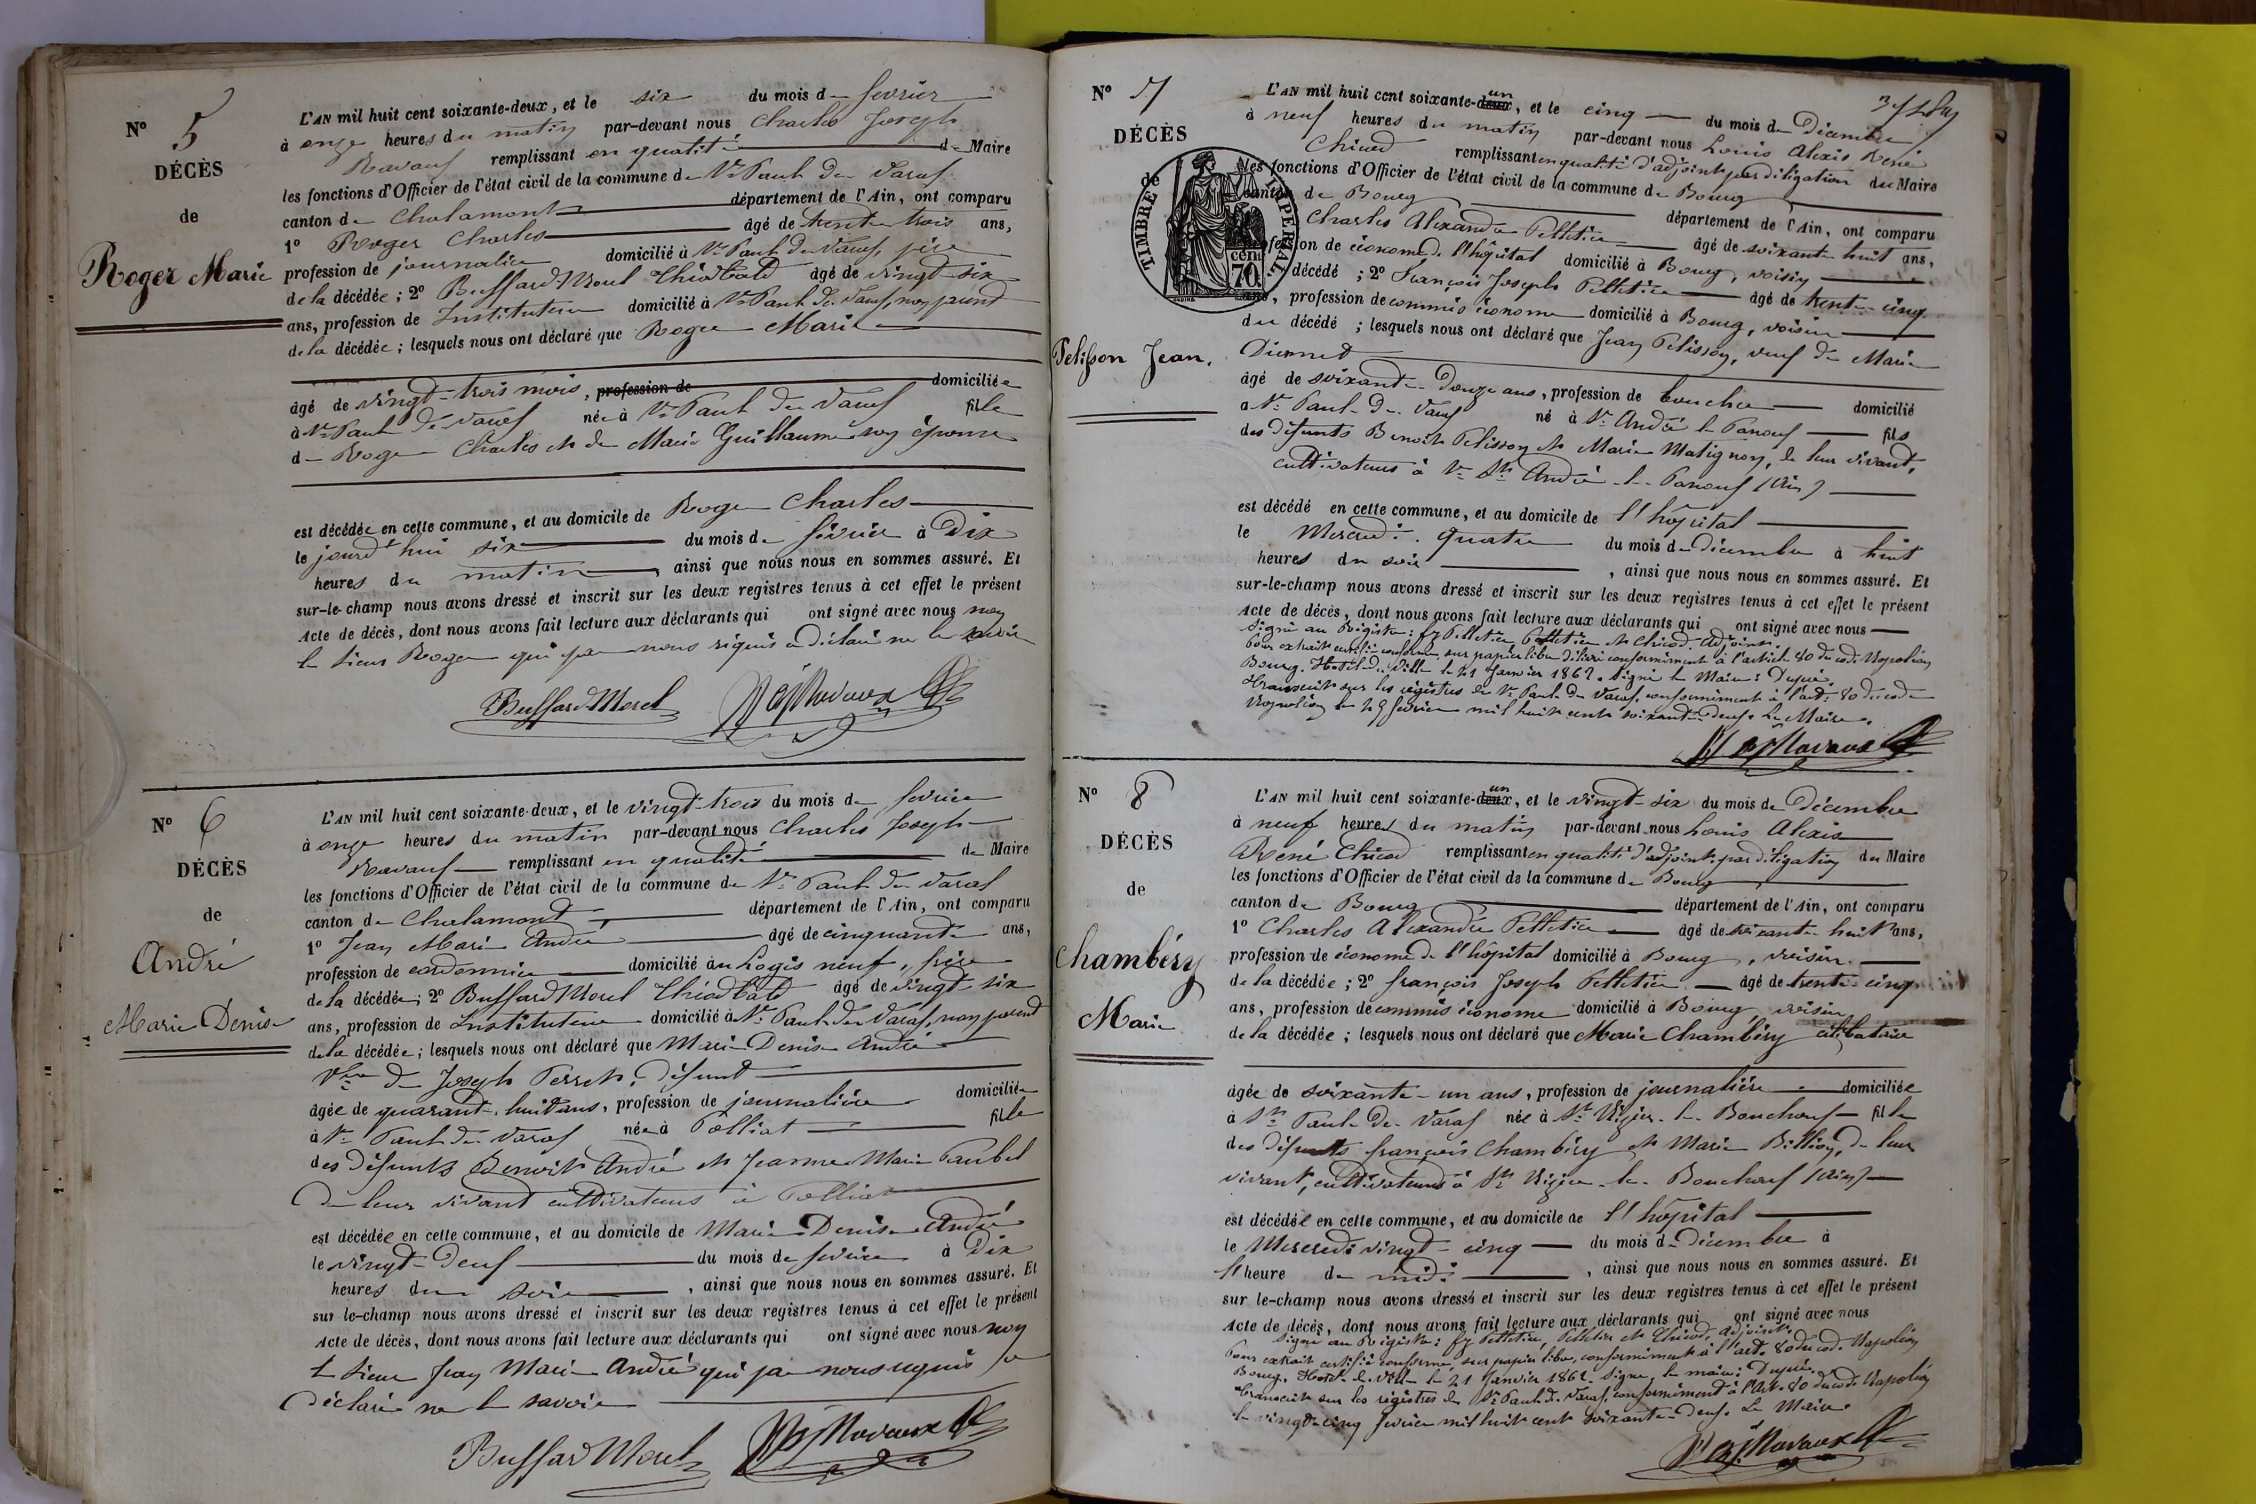 N° 5
DÉCÈS
de
Roger Marie
L'AN mil huit cent soixante-deux, et le six du mois de février
à onze heures du matin par-devant nous Charles Joseph
Ravaux remplissant en qualité de Maire
les fonctions d'Officier de l'état civil de la commune de St Paul de Varax
canton de Chalamont département de l'Ain, ont comparu
1° Roger Charles âgé de trente trois ans,
profession de journalier domicilié à St Paul de Varax, père
de la décédée ; 2° Buffard Morel Théodbald âgé de vingt-six
ans, profession de Instituteur domicilié à St Paul de Varax, non parent
de la décédée ; lesquels nous ont déclaré que Roger Marie
âgé de vingt-trois mois, profession de domiciliée
à St Paul de Varax née à St Paul de Varax fille
de Roger Charles et de Marie Guillaume son épouse
est décédée en cette commune, et au domicile de Roger Charles
le jourd'hui six du mois de février à Dix
heures du matin, ainsi que nous nous en sommes assuré. Et
sur-le-champ nous avons dressé et inscrit sur les deux registres tenus à cet effet le présent
Acte de décès, dont nous avons fait lecture aux déclarants qui ont signé avec nous non
le sieur Roger qui par nous requis a déclaré ne le savoir
Buffard Morel Ravaux
N° 6
DÉCÈS
de
André
Marie Denise
L'AN mil huit cent soixante-deux, et le vingt-trois du mois de février
à onze heures du matin par-devant nous Charles Joseph
Ravaux remplissant en qualité de Maire
les fonctions d'Officier de l'état civil de la commune de St Paul de Varax
canton de Chalamont, département de l'Ain, ont comparu
1° Jean Marie André âgé de cinquante ans,
profession de cordonnier domicilié au Logis neuf, frère
de la décédée ; 2° Buffard Morel Théodbald âgé de vingt six
ans, profession de Instituteur domicilié à St Paul de Varax, non parent
de la décédée ; lesquels nous ont déclaré que Marie Denise André
Vve de Joseph Perret, défunt
âgée de quarante-huit ans, profession de journalière domiciliée
à St Paul de Varax née à Polliat fille
des défunts Benoit André et Jeanne Marie Paubel
de leur vivant cultivateurs à Polliat
est décédée en cette commune, et au domicile de Marie Denise André
le vingt-deux du mois de février à Dix
heures du soir, ainsi que nous nous en sommes assuré. Et
sur le-champ nous avons dressé et inscrit sur les deux registres tenus à cet effet le présent
Acte de décès, dont nous avons fait lecture aux déclarants qui ont signé avec nous non
le sieur Jean Marie André qui par nous requis a
déclaré ne le savoir
Buffard Morel Ravaux
N° 7
DÉCÈS
de
TIMBRE IMPERIAL
70 cent
Pelisson Jean.
L'AN mil huit cent soixante-deux un, et le cinq du mois de Décembre
à neuf heures du matin par-devant nous Louis Alexis René
Chicod remplissant en qualité d'adjoint par délégation du Maire
les fonctions d'Officier de l'état civil de la commune de Bourg
canton de Bourg département de l'Ain, ont comparu
Charles Alexandre Pelletier âgé de soixante huit ans,
profession de économe de l'hôpital domicilié à Bourg, voisin
décédé ; 2° François Joseph Pelletier âgé de trente-cinq
ans, profession de commis économe domicilié à Bourg, voisin
du décédé ; lesquels nous ont déclaré que Jean Pelisson, veuf de Marie
âgé de soixante-douze ans, profession de boucher domicilié
à St Paul-de-Varax né à St André le Panoux fils
des défunts Benoit Pelisson et Marie Matignon, de leur vivant,
cultivateurs à St André-le-Panoux (Ain)
est décédé en cette commune, et au domicile de l'hôpital
le Mercredi quatre du mois de décembre à huit
heures du soir, ainsi que nous nous en sommes assuré. Et
sur-le-champ nous avons dressé et inscrit sur les deux registres tenus à cet effet le présent
Acte de décès, dont nous avons fait lecture aux déclarants qui ont signé avec nous
Signé au Registre : Pelletier, Pelletier et Chicod adjoint.
Pour extrait certifié conforme, sur papier libre délivré conformément à l'article 80 du code Napoléon
Bourg, Hotel-de-Ville le 21 Janvier 1862. Signé le Maire :
Transcrit sur les registres de St Paul de Varax conformément à l'art. 80 du code
Napoléon le 25 février mil huit cent soixante-deux. Le Maire.
Ravaux
N° 8
DÉCÈS
de
Chambéry
Marie
L'AN mil huit cent soixante-deux un, et le vingt-six du mois de Décembre
à neuf heures du matin par-devant nous Louis Alexis
René Chicod remplissant en qualité d'adjoint par délégation du Maire
les fonctions d'Officier de l'état civil de la commune de Bourg
canton de Bourg département de l'Ain, ont comparu
1° Charles Alexandre Pelletier âgé de soixante huit ans,
profession de économe de l'hôpital domicilié à Bourg, voisin.
de la décédée ; 2° françois Joseph Pelletier âgé de trente-cinq
ans, profession de commis économe domicilié à Bourg, voisin
de la décédée ; lesquels nous ont déclaré que Marie Chambéry célibataire
âgée de soixante-un ans, profession de journalière domiciliée
à St Paul-de-Varax née à St Nizier-le-Bouchoux fille
des défunts françois Chambéry et Marie Billion, de leur
vivant, cultivateurs à St Nizier-le-Bouchoux (Ain)
est décédée en cette commune, et au domicile de l'hôpital
le Mercredi vingt-cinq du mois de décembre à
l'heure de midi, ainsi que nous nous en sommes assuré. Et
sur le-champ nous avons dressé et inscrit sur les deux registres tenus à cet effet le présent
Acte de décès, dont nous avons fait lecture aux déclarants qui ont signé avec nous
Signé au Registre : Pelletier, Pelletier et Chicod, adjoint.
Pour extrait certifié conforme, sur papier libre, conformément à l'art. 80 du code Napoléon
Bourg, Hotel-de-Ville le 21 Janvier 1862. Signé, le maire :
Transcrit sur les registres de St Paul de Varax conformément à l'Art. 80 du code Napoléon
le vingt-cinq février mil huit cent soixante-deux. Le Maire.
Ravaux